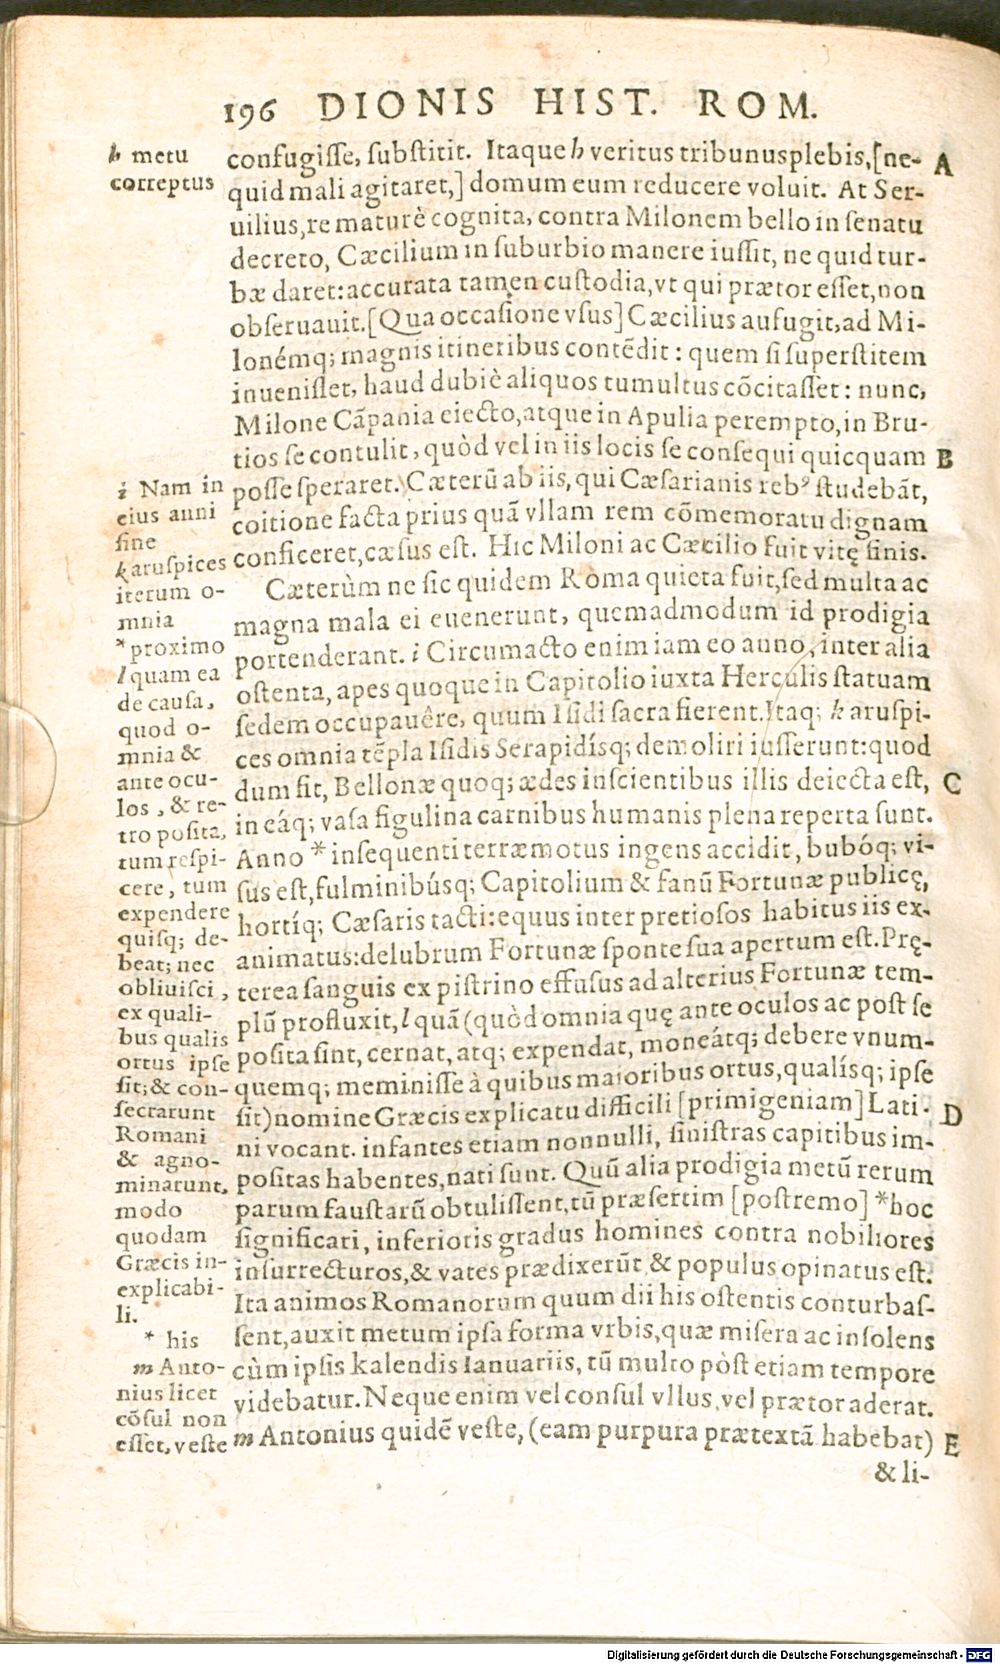 196 DIONIS HIST. ROM.
h metu
correptus
confugiſſe, ſubſtitit. Itaque h veritus tribunusplebis,[ne- A
quid mali agitaret,] domum eum reducere voluit. At Ser-
uilius,re maturè cognita, contra Milonem bello in ſenatu
decreto, Cæcilium in ſuburbio manere iuſſit, ne quid tur-
bæ daret:accurata tamen cuſtodia,vt qui prætor eſſet,non
obſeruauit.[Qua occaſione vſus] Cæcilius aufugit,ad Mi-
lonémq; magnis itineribus contẽdit : quem ſi ſuperſtitem
inueniſſet, haud dubiè aliquos tumultus cõcitaſſet: nunc,
Milone Cãpania eiecto,atque in Apulia perempto,in Bru-
tios ſe contulit, quòd vel in iis locis ſe conſequi quicquam B
poſſe ſperaret. Cæterũ ab iis, qui Cæſarianis rebꝰ ſtudebãt,
coitione facta prius quã vllam rem cõmemoratu dignam
conficeret,cæſus eſt. Hic Miloni ac Cæcilio fuit vitę finis.
Cæterùm ne ſic quidem Roma quieta fuit,ſed multa ac
magna mala ei euenerunt, quemadmodum id prodigia
portenderant. i Circumacto enim iam eo anno, inter alia
oſtenta, apes quoque in Capitolio iuxta Herculis ſtatuam
ſedem occupauêre, quum Iſidi ſacra fierent.Itaq; k aruſpi-
ces omnia tẽpla Iſidis Serapidíſq; demoliri iuſſerunt:quod
dum fit, Bellonæ quoq; ædes inſcientibus illis deiecta eſt, C
in eáq; vaſa figulina carnibus humanis plena reperta ſunt.
Anno * inſequenti terræmotus ingens accidit, bubóq; vi-
ſus eſt,fulminibúsq; Capitolium & fanũ Fortunæ publicę,
hortíq; Cæſaris tacti:equus inter pretioſos habitus iis ex-
animatus:delubrum Fortunæ ſponte ſua apertum eſt.Prę-
terea ſanguis ex piſtrino effuſus ad alterius Fortunæ tem-
plũ profluxit, l quã (quòd omnia quę ante oculos ac poſt ſe
poſita ſint, cernat, atq; expendat, moneátq; debere vnum-
quemq; meminiſſe à quibus maioribus ortus,qualíſq; ipſe
ſit) nomine Græcis explicatu difficili [primigeniam] Lati- D
ni vocant. infantes etiam nonnulli, ſiniſtras capitibus im-
poſitas habentes,nati ſunt. Quũ alia prodigia metũ rerum
parum fauſtarũ obtuliſſent,tũ præſertim [poſtremo] *hoc
ſignificari, inferioris gradus homines contra nobiliores
inſurrecturos,& vates prædixerũt & populus opinatus eſt.
Ita animos Romanorum quum dii his oſtentis conturbaſ-
ſent,auxit metum ipſa forma vrbis,quæ miſera ac inſolens
cùm ipſis kalendis Ianuariis, tũ multo pòſt etiam tempore
videbatur. Neque enim vel conſul vllus, vel prætor aderat.
m Antonius quidẽ veſte, (eam purpura prætextã habebat) E
& li-
i Nam in
eius anni
fine
k aruſpices
iterum o-
mnia
* proximo
l quam ea
de cauſa,
quod o-
mnia &
ante ocu-
los , & re-
tro poſita,
tum reſpi-
cere, tum
expendere
quiſq; de-
beat; nec
obliuiſci ,
ex quali-
bus qualis
ortus ipſe
ſit;& con-
ſecrarunt
Romani
& agno-
minarunt,
modo
quodam
Græcis in-
explicabi-
li.
* his
m Anto-
nius licet
cõſul non
eſſet, veſte
Digitalisierung gefördert durch die Deutsche Forschungsgemeinschaft - DFG